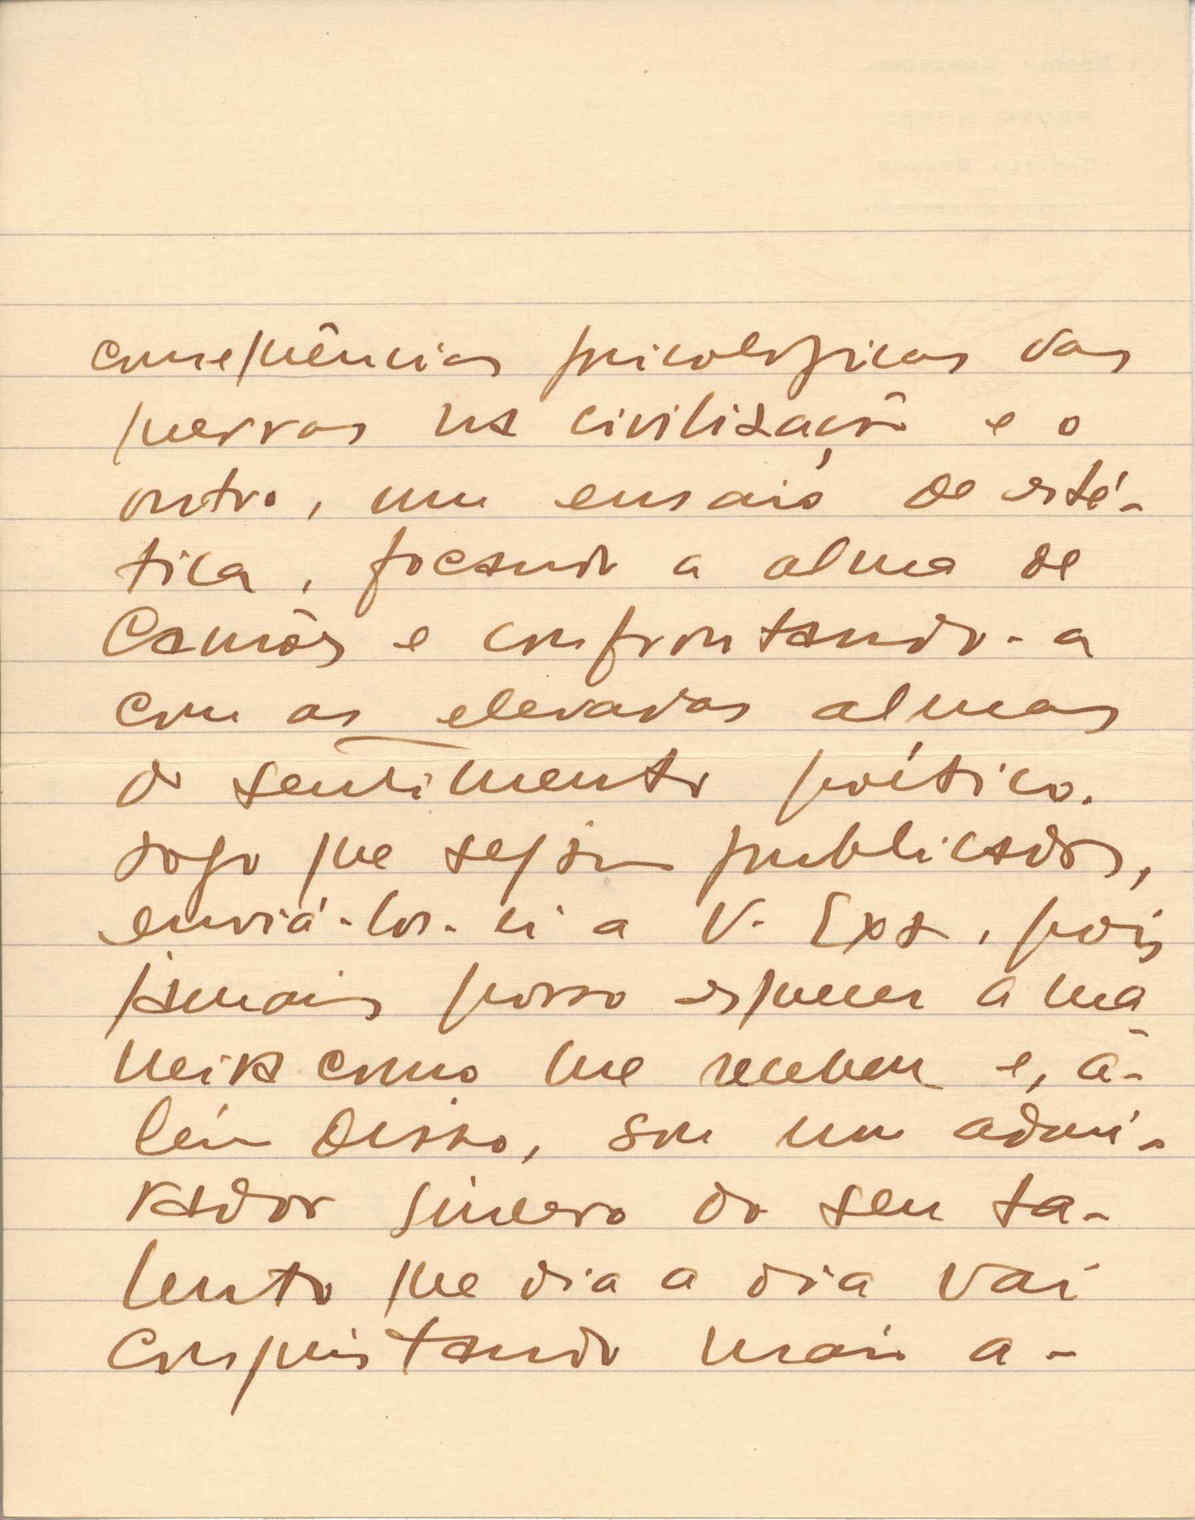 consequências psicologicas das
guerras na civilização e o
outro, um ensaio de esté-
tica, focando a alma de
Camões e confrontando-a
com as elevadas almas
do sentimento poético.
Logo que sejam publicados,
enviá-los-ei a V. Exa, pois
jamais posso esquecer a ma
neira como me recebeu e, a-
lém disso, sou um admi-
rador sincero do seu ta-
lento que dia a dia vai
conquistando mais a-